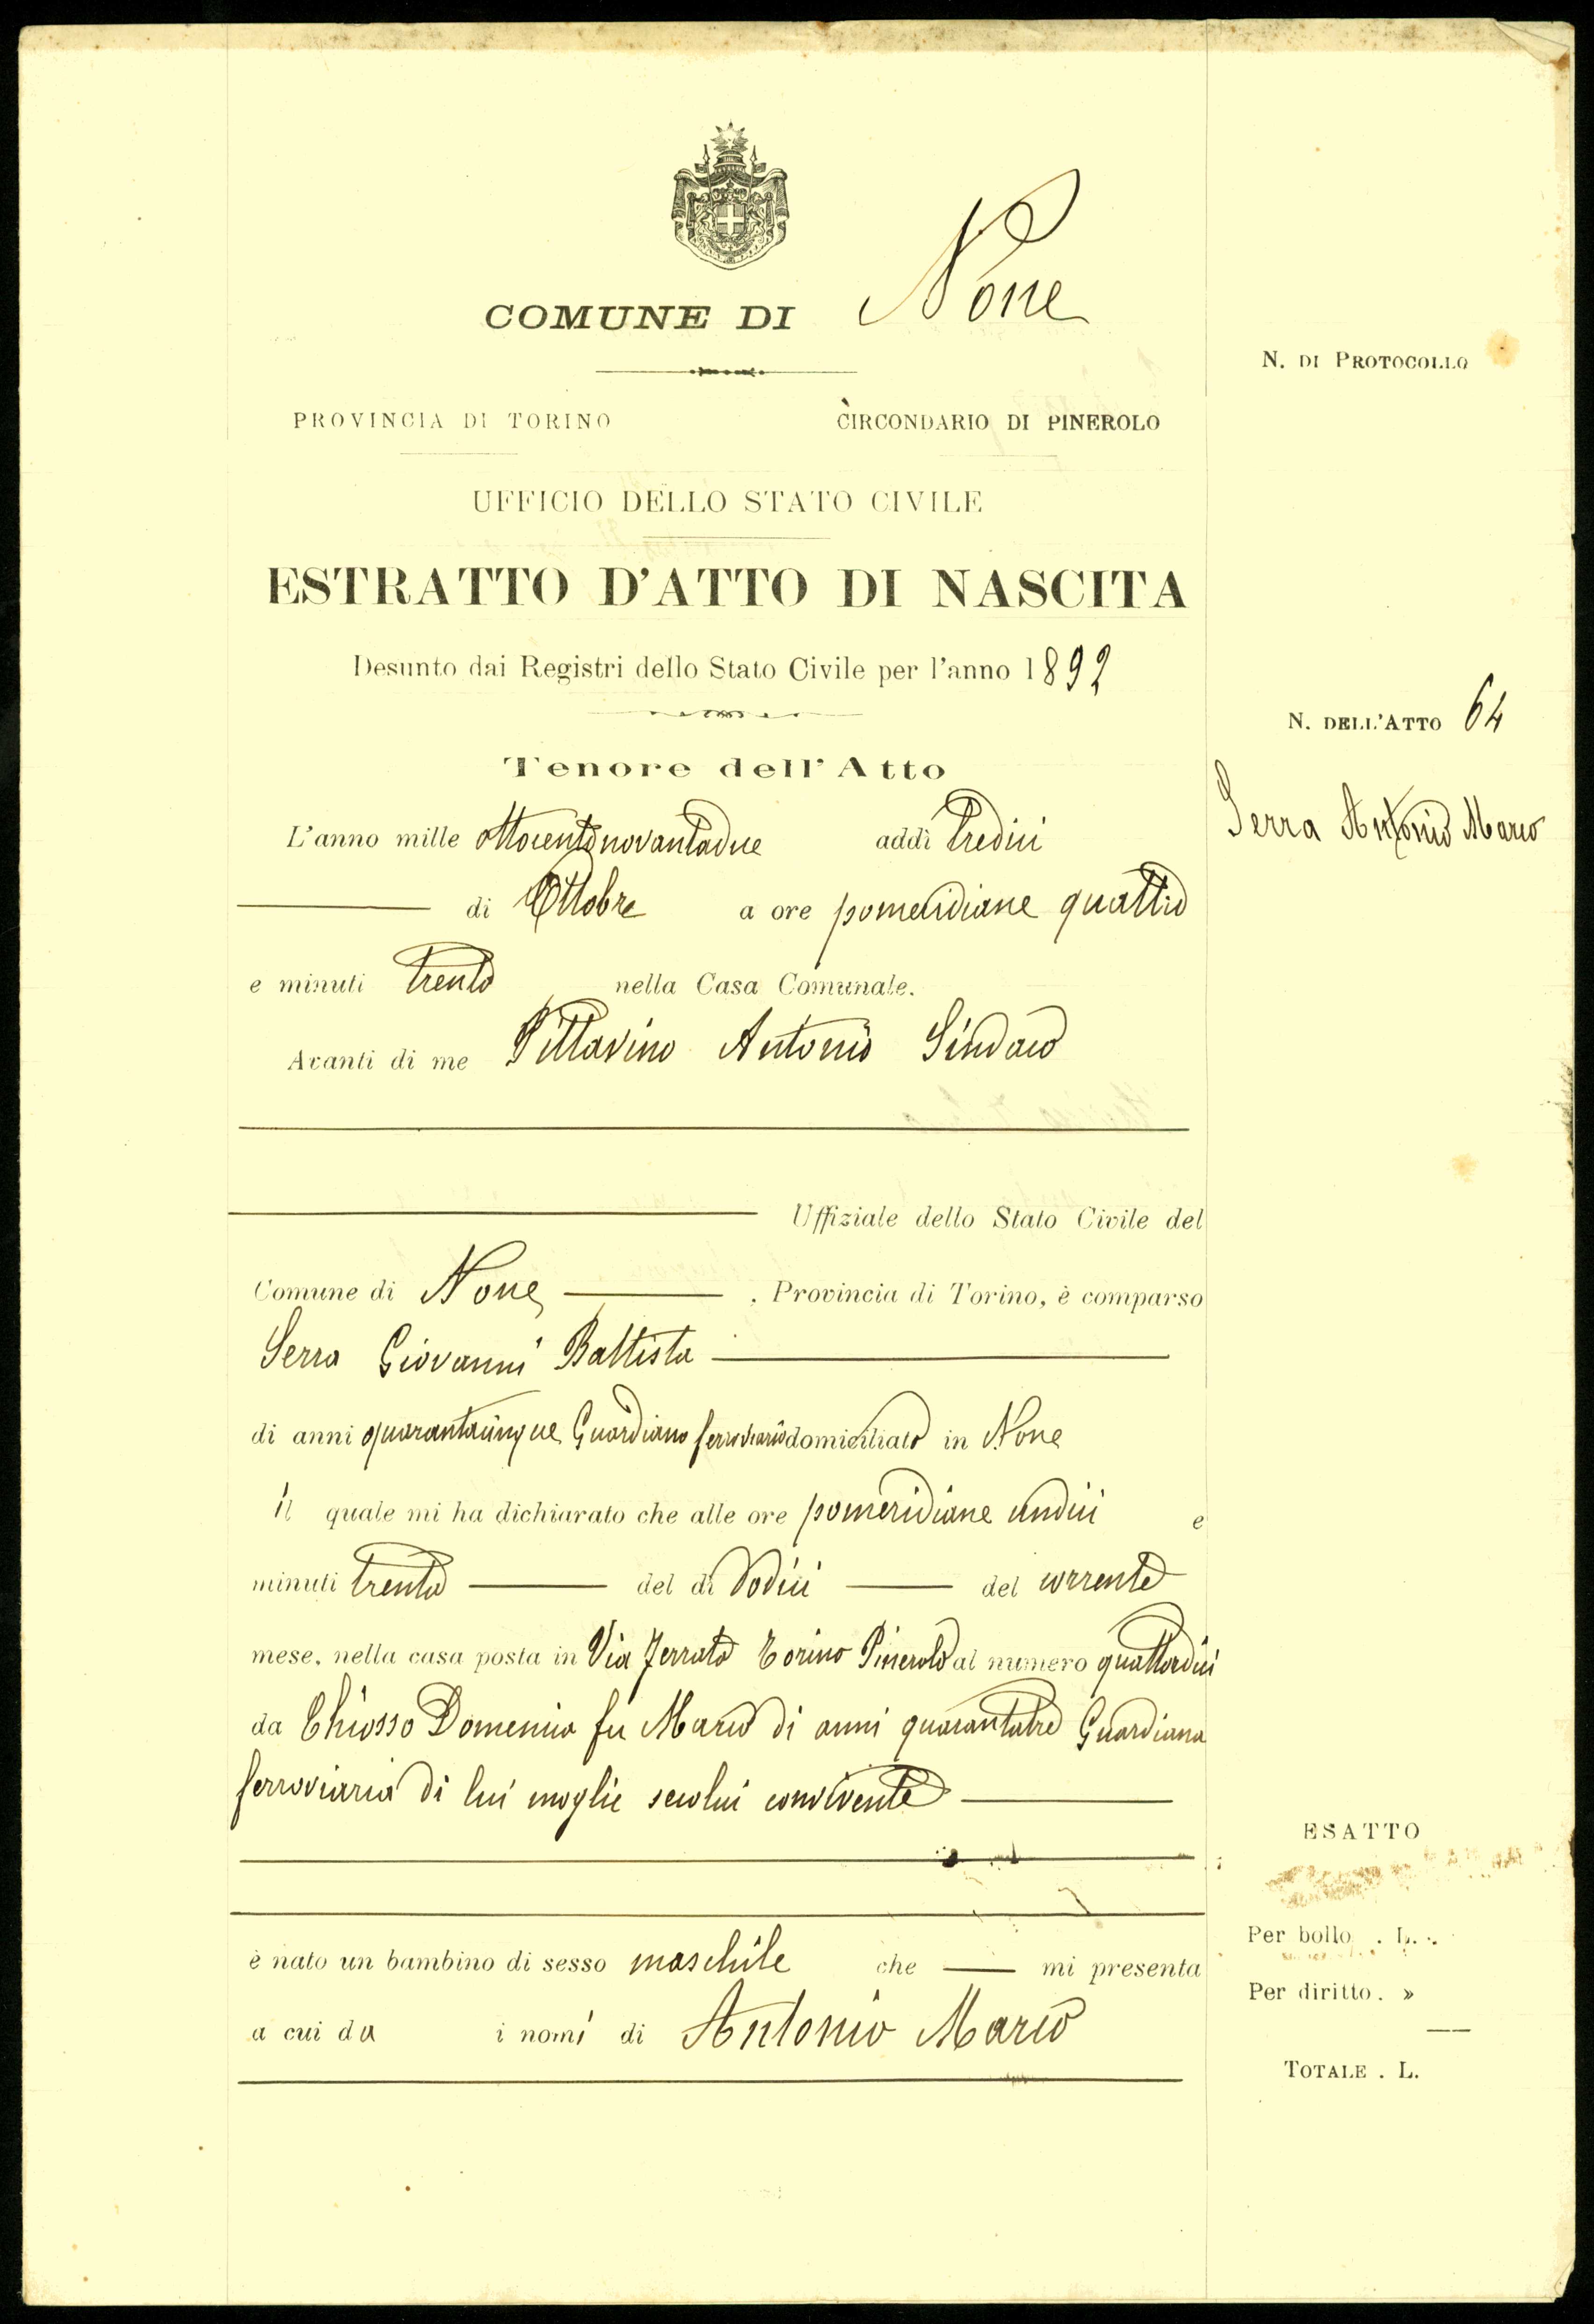 COMUNE DI None
N. DI PROTOCOLLO
PROVINCIA DI TORINO CIRCONDARIO DI PINEROLO
UFFICIO DELLO STATO CIVILE
ESTRATTO D'ATTO DI NASCITA
Desunto dai Registri dello Stato Civile per l'anno 1892
N. DELL'ATTO 64
Serra Antonio Mario
Tenore dell'Atto
L'anno mille ottocentonovantadue addì tredici
di Ottobre a ore pomeridiane quattro
e minuti trenta nella Casa Comunale.
Avanti di me Pittavino Antonio Sindaco
Uffiziale dello Stato Civile del
Comune di None , Provincia di Torino, è comparso
Serra Giovanni Battista
di anni quarantacinque Guardiano ferroviario domiciliato in None
il quale mi ha dichiarato che alle ore pomeridiane undici e
minuti trenta del dì dodici del corrente
mese, nella casa posta in Via Ferrata Torino Pinerolo al numero quattordici
da Chiosso Domenica fu Mario di anni quarantatre Guardiana
ferroviaria di lui moglie secolui convivente
è nato un bambino di sesso maschile che mi presenta
a cui da i nomi di Antonio Mario
ESATTO
Per bollo . L.
Per diritto . »
TOTALE . L.